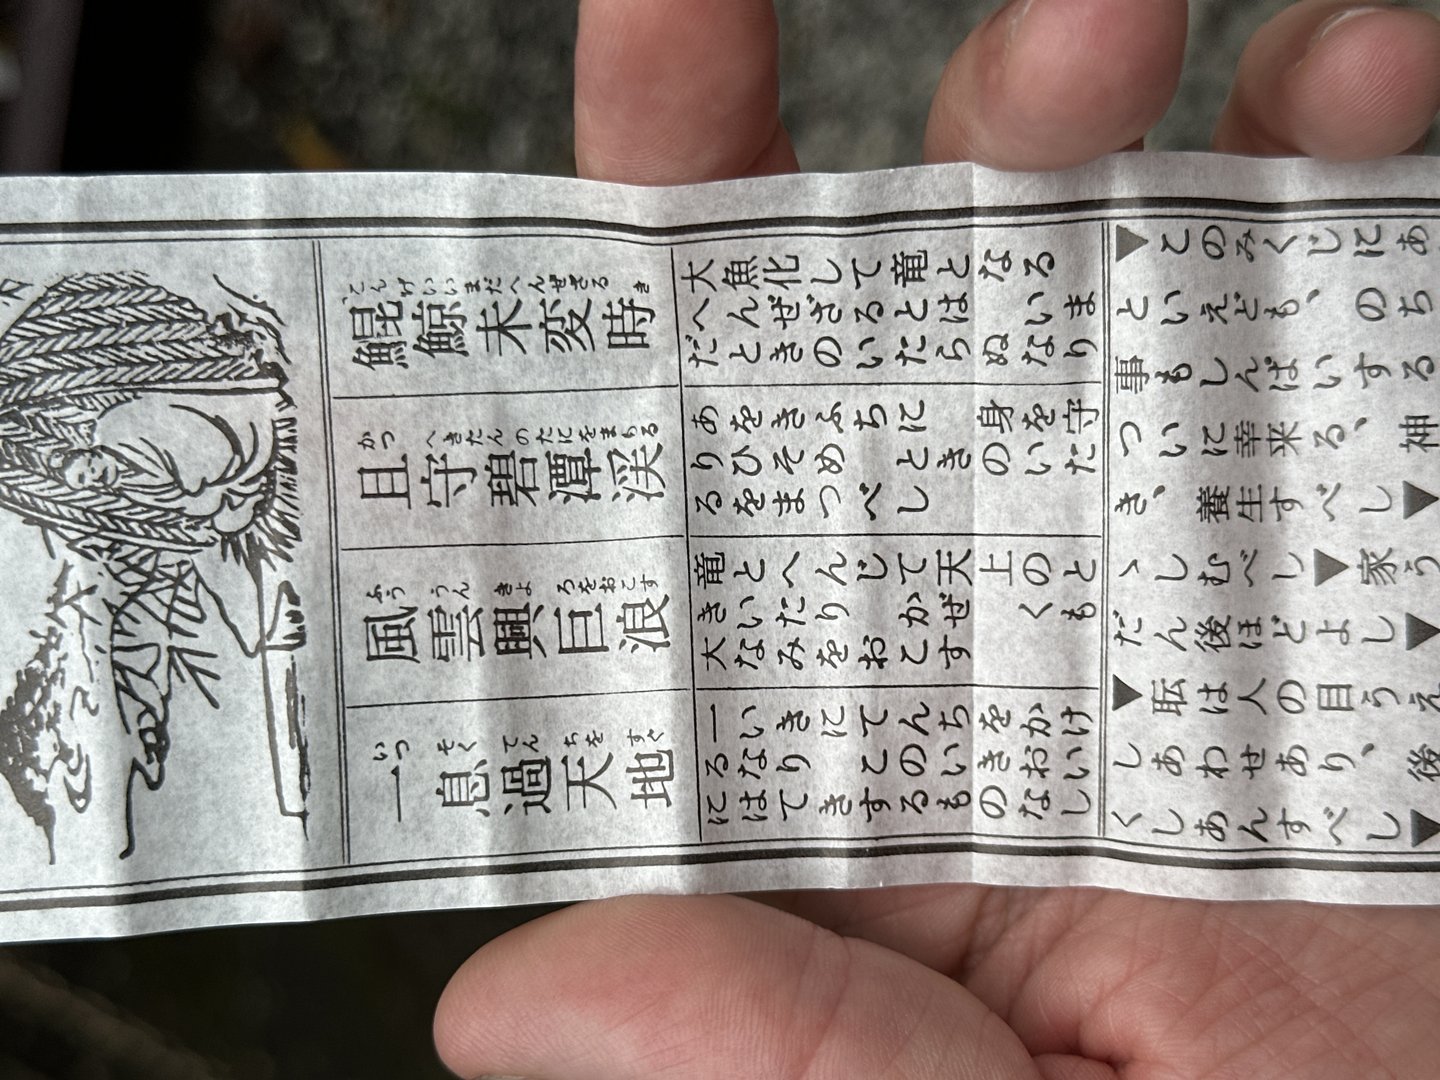 鯤鯨未変時
こんげいいまだへんぜざるき
且守碧潭渓
かつへきたんのたにをまもる
風雲興巨浪
ふううんきよろをおこす
一息過天地
いつそくてんちをすぐ
大魚化して竜となる
へんぜざるとは いま
だときのいたらぬなり
あをきふちに 身を守
りひそめ ときのいた
るをまつべし
竜とへんじて天上のと
きいたり かぜ くも
大なみをおこす
一いきにてんちをかけ
るなり このいきおい
にはてきするものなし
▼このみくじにあ
といえども、のち
事もしんぱいする
ついに幸来る、神
き、養生すべし▼
ゝしむべし▼家う
だん後ほどよし▼
▼耘は人の目うえ
しあわせあり、後
くしあんすべし▼